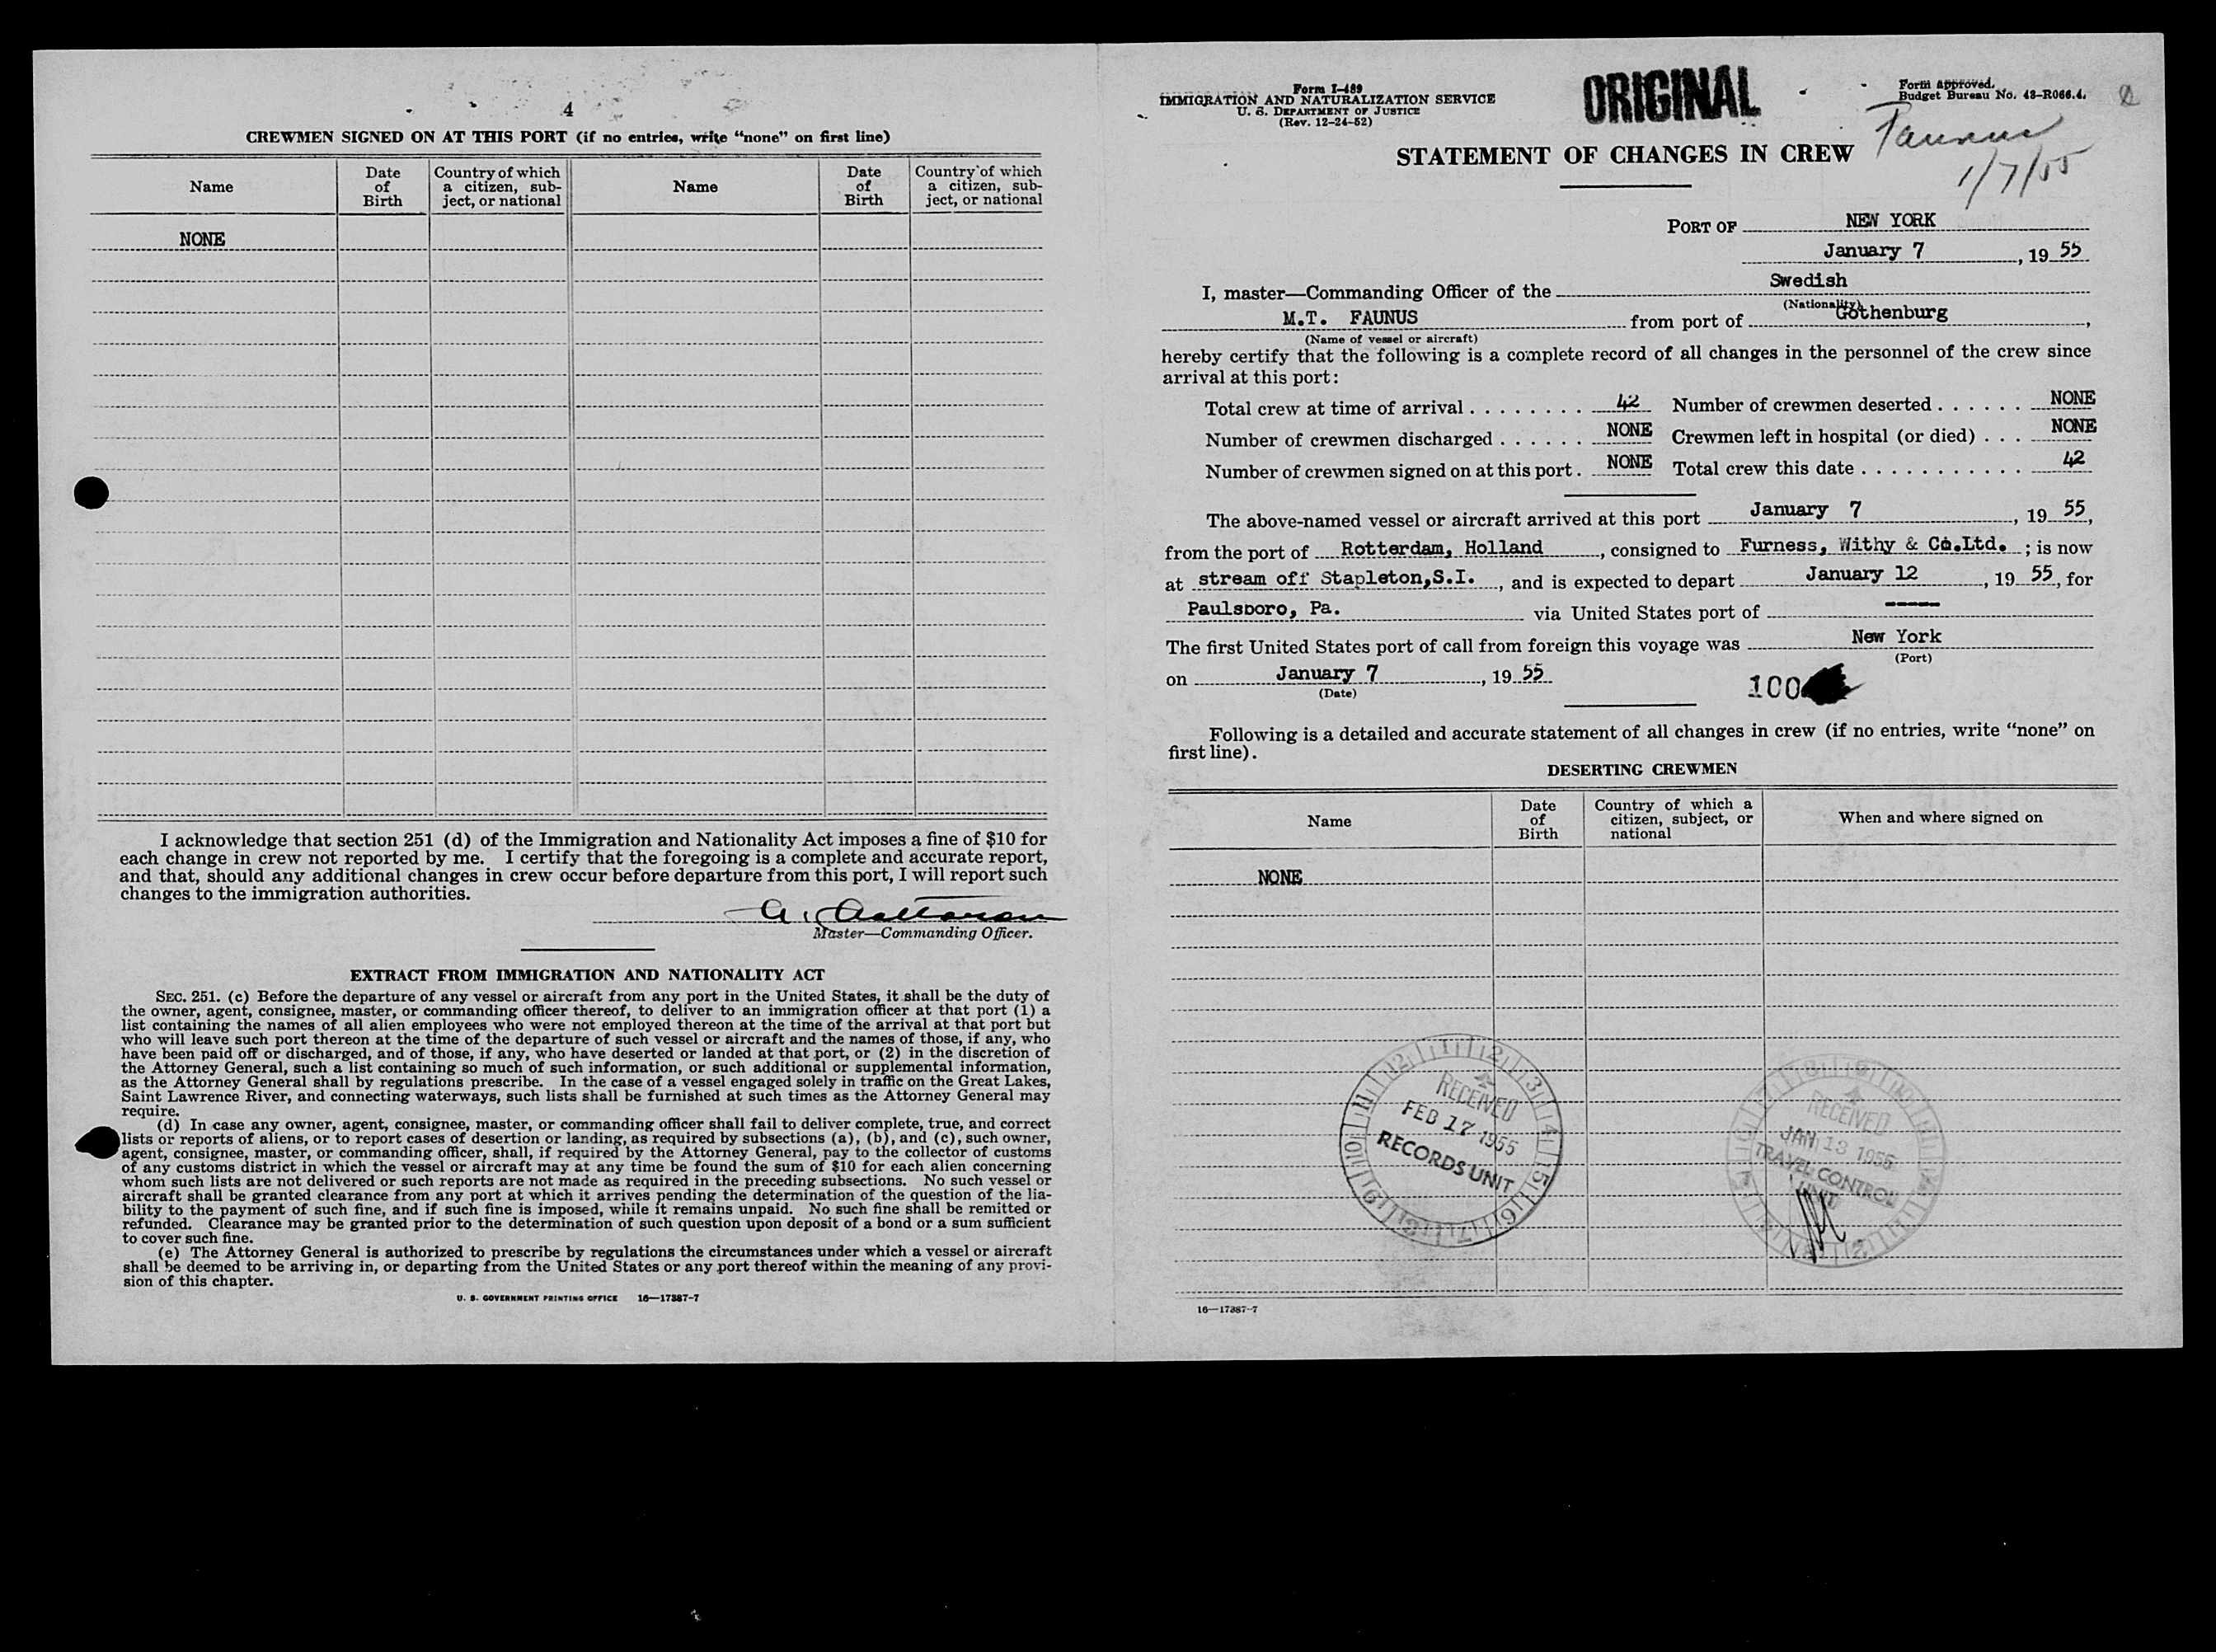 4
CREWMEN SIGNED ON AT THIS PORT (if no entries, write “none” on first line)
Name
Date of Birth
Country of which a citizen, sub-ject, or national
Name
Date of Birth
Country of which a citizen, sub-ject, or national
NONE
I acknowledge that section 251 (d) of the Immigration and Nationality Act imposes a fine of $10 for
each change in crew not reported by me. I certify that the foregoing is a complete and accurate report,
and that, should any additional changes in crew occur before departure from this port, I will report such
changes to the immigration authorities.
Master—Commanding Officer.
EXTRACT FROM IMMIGRATION AND NATIONALITY ACT
SEC. 251. (c) Before the departure of any vessel or aircraft from any port in the United States, it shall be the duty of
the owner, agent, consignee, master, or commanding officer thereof, to deliver to an immigration officer at that port (1) a
list containing the names of all alien employees who were not employed thereon at the time of the arrival at that port but
who will leave such port thereon at the time of the departure of such vessel or aircraft and the names of those, if any, who
have been paid off or discharged, and of those, if any, who have deserted or landed at that port, or (2) in the discretion of
the Attorney General, such a list containing so much of such information, or such additional or supplemental information,
as the Attorney General shall by regulations prescribe. In the case of a vessel engaged solely in traffic on the Great Lakes,
Saint Lawrence River, and connecting waterways, such lists shall be furnished at such times as the Attorney General may
require.
(d) In case any owner, agent, consignee, master, or commanding officer shall fail to deliver complete, true, and correct
lists or reports of aliens, or to report cases of desertion or landing, as required by subsections (a), (b), and (c), such owner,
agent, consignee, master, or commanding officer, shall, if required by the Attorney General, pay to the collector of customs
of any customs district in which the vessel or aircraft may at any time be found the sum of $10 for each alien concerning
whom such lists are not delivered or such reports are not made as required in the preceding subsections. No such vessel or
aircraft shall be granted clearance from any port at which it arrives pending the determination of the question of the lia-
bility to the payment of such fine, and if such fine is imposed, while it remains unpaid. No such fine shall be remitted or
refunded. Clearance may be granted prior to the determination of such question upon deposit of a bond or a sum sufficient
to cover such fine.
(e) The Attorney General is authorized to prescribe by regulations the circumstances under which a vessel or aircraft
shall be deemed to be arriving in, or departing from the United States or any port thereof within the meaning of any provi-
sion of this chapter.
U. S. GOVERNMENT PRINTING OFFICE 16—17387-7
Form I-489
IMMIGRATION AND NATURALIZATION SERVICE
U. S. DEPARTMENT OF JUSTICE
(Rev. 12-24-52)
ORIGINAL
Form approved.
Budget Bureau No. 43-R066.4.
Faunus
1/7/55
STATEMENT OF CHANGES IN CREW
PORT OF NEW YORK
January 7, 19 55
I, master—Commanding Officer of the Swedish
(Nationality)
M.T. FAUNUS from port of Gothenburg,
(Name of vessel or aircraft)
hereby certify that the following is a complete record of all changes in the personnel of the crew since
arrival at this port:
Total crew at time of arrival . . . . . . . . 42 Number of crewmen deserted . . . . . . NONE
Number of crewmen discharged . . . . . . NONE Crewmen left in hospital (or died) . . . NONE
Number of crewmen signed on at this port . NONE Total crew this date . . . . . . . . . . . 42
The above-named vessel or aircraft arrived at this port January 7, 19 55,
from the port of Rotterdam, Holland, consigned to Furness, Withy & Co.Ltd. ; is now
at stream off Stapleton,S.I., and is expected to depart January 12, 19 55, for
Paulsboro, Pa. via United States port of -----
The first United States port of call from foreign this voyage was New York
(Port)
on January 7, 19 55
(Date)
100
Following is a detailed and accurate statement of all changes in crew (if no entries, write “none” on
first line).
DESERTING CREWMEN
Name
Date of Birth
Country of which a citizen, subject, or national
When and where signed on
NONE
RECEIVED
FEB 17 1955
RECORDS UNIT
RECEIVED
JAN 13 1955
TRAVEL CONTROL
UNIT
16—17387-7